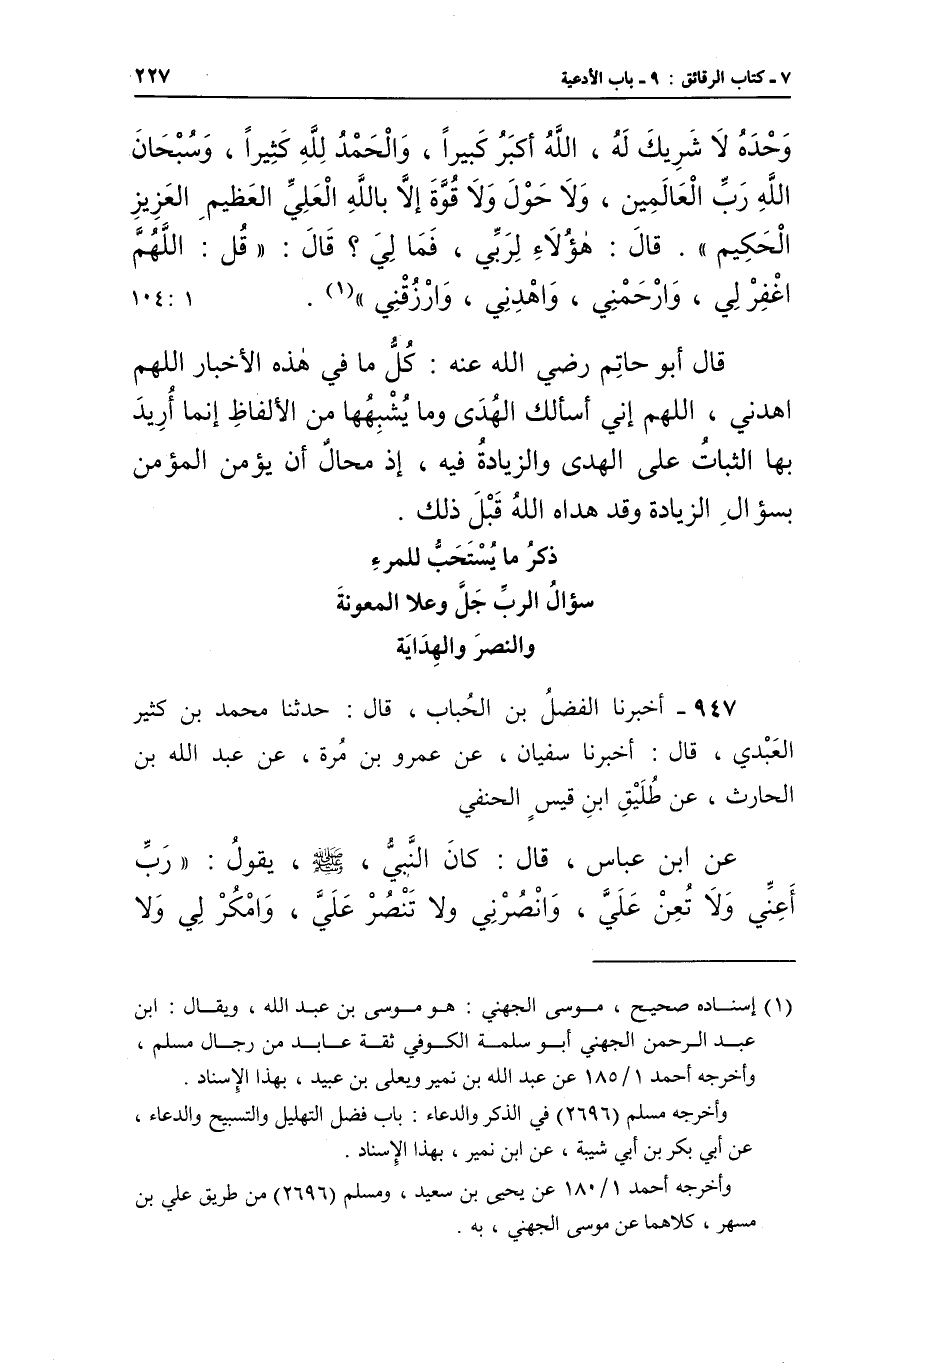 ٧ - كتاب الرقائق : ٩ - باب الأدعية ٢٢٧
وَحْدَهُ لَا شَرِيكَ لَهُ ، اللَّهُ أكبَرُ كَبيراً ، وَالْحَمْدُ لِلَّهِ كَثِيراً ، وَسُبْحَانَ
اللَّهِ رَبِّ الْعَالَمِين ، وَلَا حَوْلَ وَلَا قُوَّةَ إلَّا باللَّهِ الْعَلِيِّ العَظيمِ العَزِيزِ
الْحَكِيم » . قالَ : هٰؤُلَاءِ لِرَبِّي ، فَمَا لِيَ ؟ قَالَ : « قُل : اللَّهُمَّ
اغْفِرْ لِي ، وَارْحَمْنِي ، وَاهْدِنِي ، وَارْزُقْنِي »(١) . ١٠٤:١
قال أبو حاتِم رضي الله عنه : كُلُّ ما في هٰذه الأخبار اللهم
اهدني ، اللهم إني أسألك الهُدَى وما يُشْبِهُها من الألفاظِ إنما أُرِيدَ
بها الثباتُ على الهدى والزيادةُ فيه ، إذ محالٌ أن يؤمن المؤمن
بسؤالِ الزيادة وقد هداه اللهُ قَبْلَ ذلك .
ذكرُ ما يُسْتَحَبُّ للمرءِ
سؤالُ الربِّ جَلَّ وعلا المعونةَ
والنصرَ والهِدَايَة
٩٤٧ - أخبرنا الفضلُ بن الحُباب ، قال : حدثنا محمد بن كثير
العَبْدي ، قال : أخبرنا سفيان ، عن عمرو بن مُرة ، عن عبد الله بن
الحارث ، عن طُلَيْقِ ابنِ قيسٍ الحنفي
عن ابن عباس ، قال : كانَ النَّبِيُّ ، ﷺ ، يقولُ : « رَبِّ
أَعِنِّي وَلَا تُعِنْ عَلَيَّ ، وَانْصُرْنِي ولا تَنْصُرْ عَلَيَّ ، وَامْكُرْ لِي وَلا
(١) إسناده صحيح ، موسى الجهني : هو موسى بن عبد الله ، ويقال : ابن
عبد الرحمن الجهني أبو سلمة الكوفي ثقة عابد من رجال مسلم ،
وأخرجه أحمد ١/ ١٨٥ عن عبد الله بن نمير ويعلى بن عبيد ، بهذا الإسناد .
وأخرجه مسلم (٢٦٩٦) في الذكر والدعاء : باب فضل التهليل والتسبيح والدعاء ،
عن أبي بكر بن أبي شيبة ، عن ابن نمير ، بهذا الإسناد .
وأخرجه أحمد ١/ ١٨٠ عن يحيى بن سعيد ، ومسلم (٢٦٩٦) من طريق علي بن
مسهر ، كلاهما عن موسى الجهني ، به .